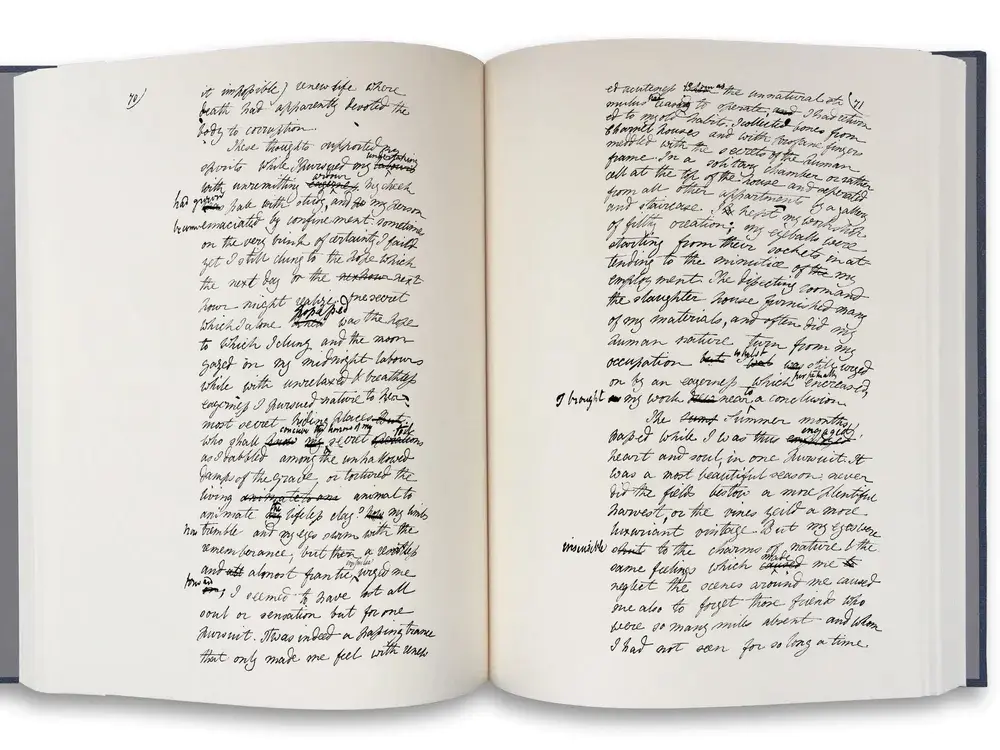 70)
it impossible) renew life where
death had apparently devoted the
body to corruption.
These thoughts supported my
spirits while I pursued my undertaking
with unremitting ardour. My cheek
had grown pale with study, and my person
became emaciated by confinement sometimes
on the very brink of certainty I failed
yet I still clung to the hope which
the next day or the next
hour might realize. One secret
which I alone possessed was the hope
to which I clung and the moon
gazed on my midnight labours
while with unrelaxed & breathless
eagerness I pursued nature to her
most secret hiding places
who shall conceive the horrors of my secret toils
as I dabbled among the unhallowed
damps of the grave, or tortured the
living animal to
animate the lifeless clay? my limbs
now tremble and my eyes swim with the
remembrance; but then a resistless
and almost frantic impulse urged me
forward; I seemed to have lost all
soul or sensation but for one
pursuit. It was indeed a passing trance
that only made me feel with renew
(71
ed acuteness the unnatural sti
mulus ceasing to operate, I had return
ed to my old habit. I collected bones from
charnel houses and with profane fingers
meddled with the secrets of the human
frame. In a solitary chamber or rather
cell at the top of the house and seperated
from all other appartments by a gallery
and staircase. I kept my workshop
of filthy creation; my eyeballs were
starting from their sockets in at
tending to the minutiæ of my
employment. The dissecting room and
the slaughter house furnished many
of my materials, and often did my
human nature turn from my
occupation whilst still urged
on by an eagerness which perpetually encreased
I brought my work near to a conclusion
The Summer months
passed while I was thus engaged,
heart and soul, in one pursuit. It
was a most beautiful season; never
did the fields bestow a more plentiful
harvest, or the vines yeild a more
luxuriant vintage. But my eyes were
insensible to the charms of nature & the
same feelings which made me
neglect the scenes around me caused
me also to forget those friends who
were so many miles absent and whom
I had not seen for so long a time